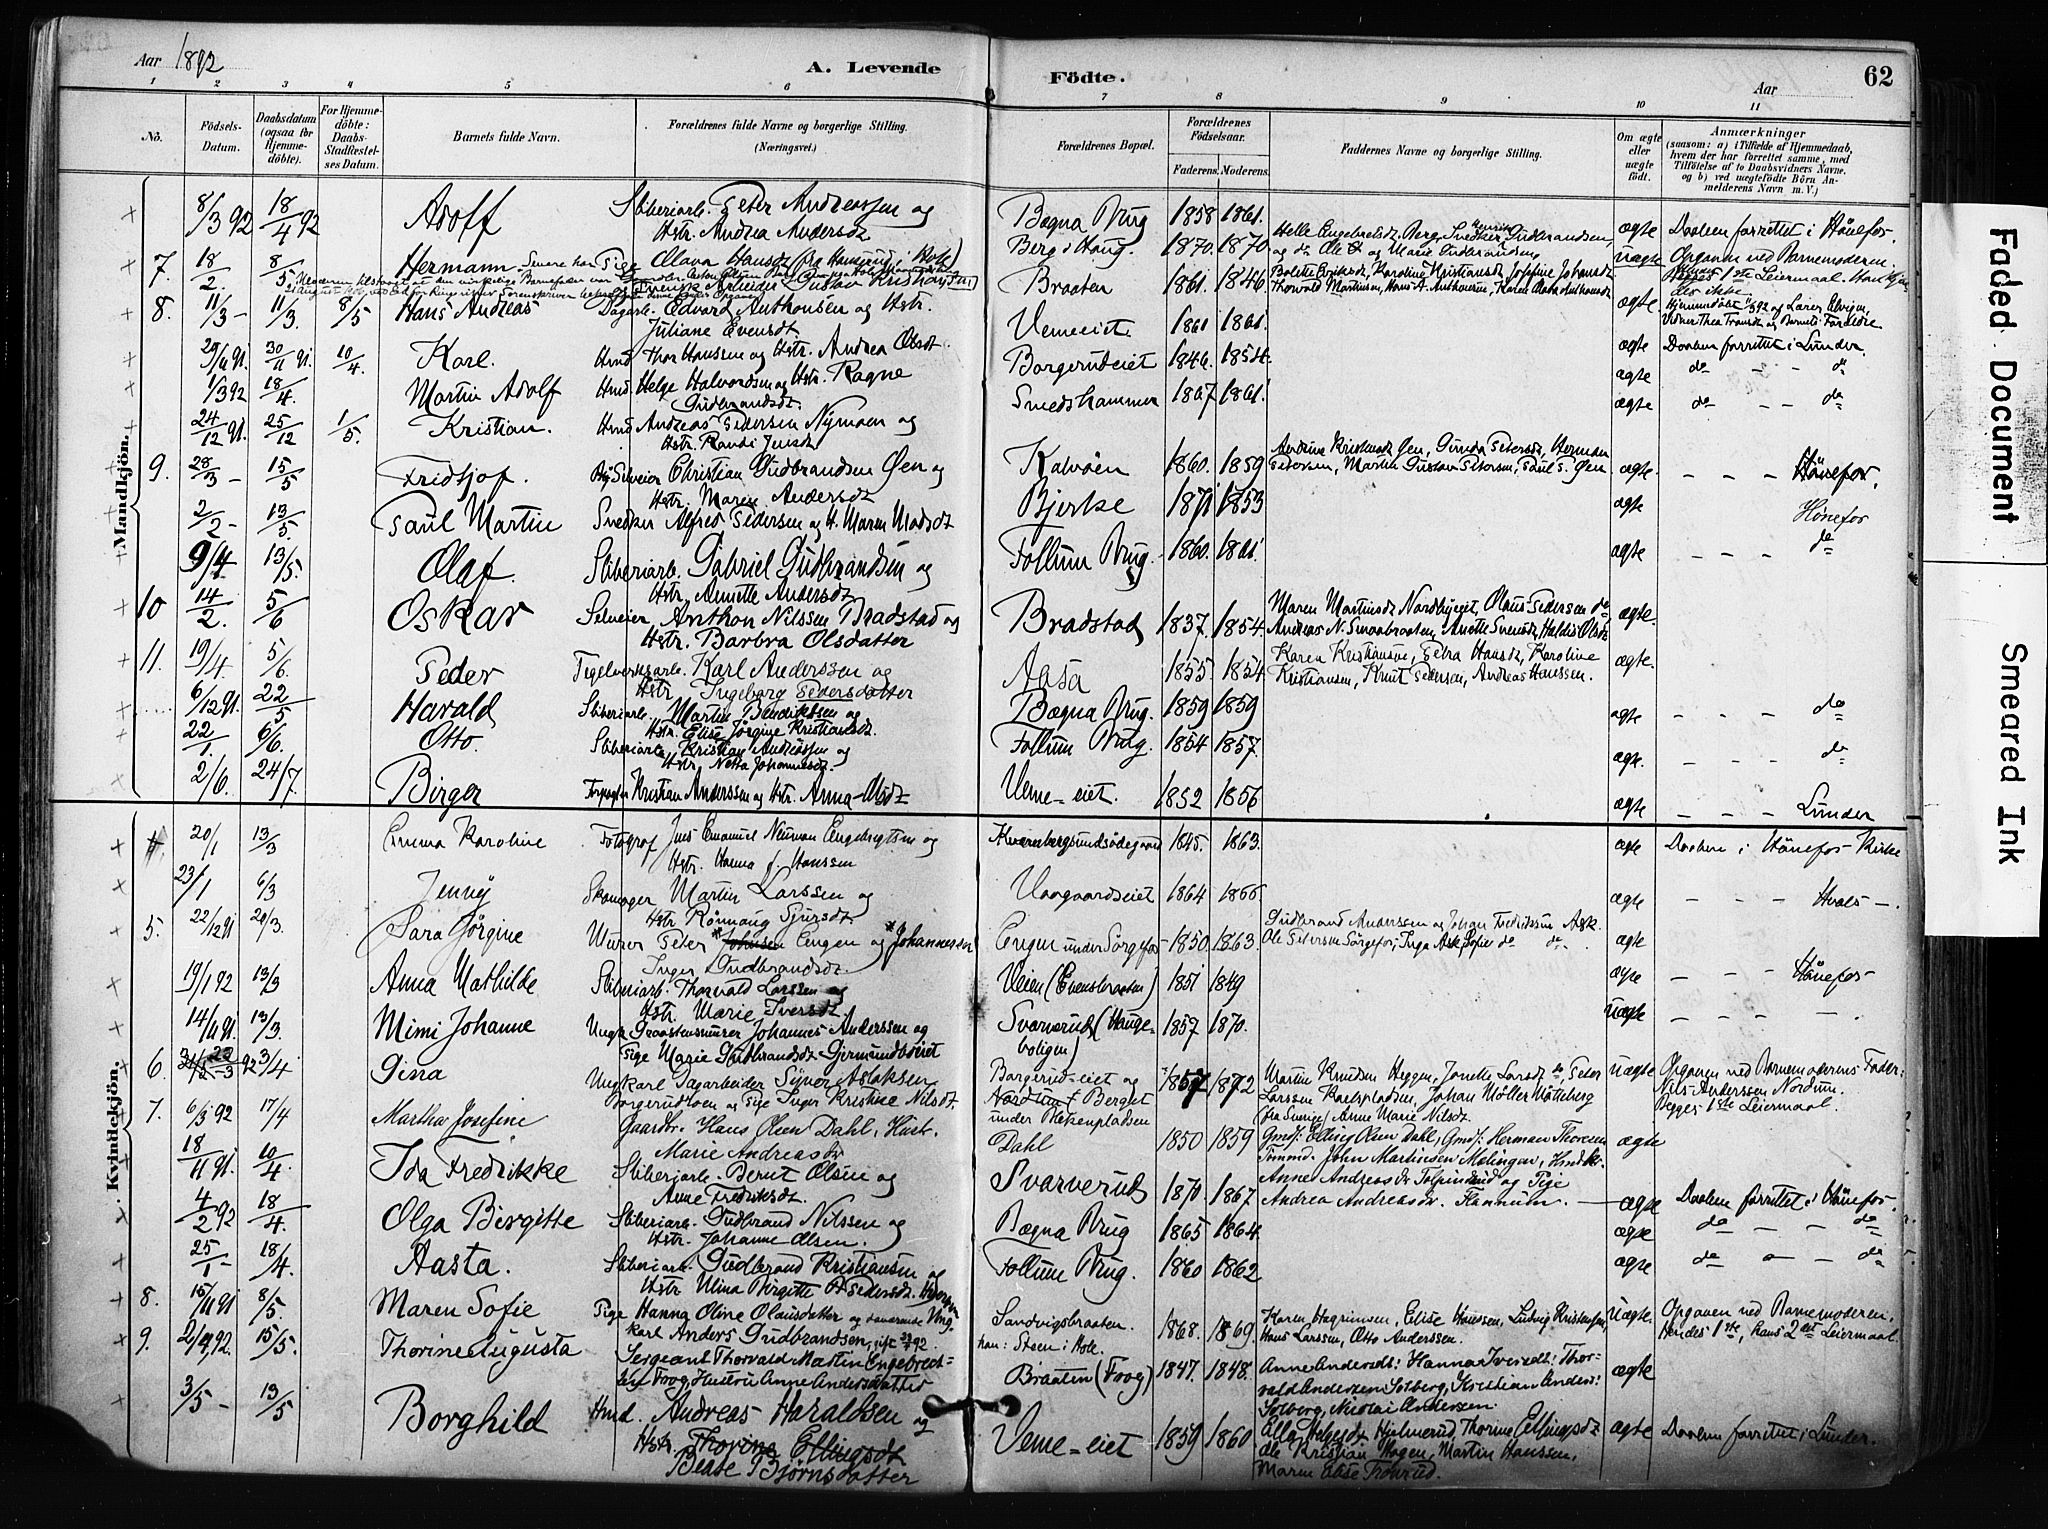 Aar 1892
A. Levende Födte.
Aar
62
1 2 3 4 5 6 7 8 9 10 11
No.
Födsels-Datum.
Daabsdatum (ogsaa for Hjemmedöbte).
For Hjemmedöbte: Daabs-Stadfæstelses Datum.
Barnets fulde Navn.
Forældrenes fulde Navne og borgerlige Stilling. (Næringsvei.)
Forældrenes Bopæl.
Forældrenes Födselsaar.
Faderens. Moderens.
Faddernes Navne og borgerlige Stilling.
Om ægte eller uægte födt.
Anmærkninger (saasom: a) i Tilfælde af Hjemmedaab, hvem der har forrettet samme, med Tilföielse af to Daabsvidners Navne, og b) ved uægtefödte Börn Anmelderens Navn m. V.)
Mandkjön.
8/3 92 18/4 92 Adolf Sliberiarb. Peter Andreassen og Hstr. Andrea Andersdt Bægna Brug 1858 1861. ægte Daaben forrettet i Hönefos.
7. 18/2. 8/5 Hermann Pige Olava Hansdt (fra Hanserud i Hole) Svensk Arbeider Gustav Kristiansen Berg i Haug. 1870. 1870. Helle Engebretsdt Berg, Snedker Henrik Gudbrandsen, og do Ole og Marie Gudbrandsen uægte Opgaven ved Barnemoderen. 1ste Leiermaal.
8. 11/3 - 11/3. 8/5 Hans Andreas Dagarb. Edvard Anthonsen og Hstr. Juliane Evensdt Braaten 1861. 1846. Bolette Eriksdt, Karoline Kristiansdt, Josefine Johansdt Thorvald Martinsen, Hans A. Anthonsen, Karen Olava Anthonsdt ægte. Hjemmedöbt 11/3 92 af Lærer Elvigen,
29/11 91. 30/11 91. 10/4. Karl. Hmd Thor Hanssen og Hstr. Andrea Olsdt. Vemeeiet. 1861 1861. ægte Daaben forrettet i Lunder.
1/3 92 18/4. Martin Adolf Hmd. Helge Halvordsen og Hstr. Ragne Gudbrandsdt. Borgerudeiet 1846. 1854. ægte do - - do
24/12 91. 25/12 1/5. Kristian. Hmd Andreas Pedersen Nymoen og Hstr. Randi Jensdt Smedshammer 1867 1861. ægte do - - do
9. 28/3 - 15/5 Fridtjof. Christian Gudbrandsen Öen og Hstr. Maren Andersdt Kalvöen 1860. 1859 Andrine Kristiansdt Öen, Gunda Petersdt, Herman Petersen, Martin Gustav Petersen, Paul P. Öen ægte. - - - Hönefos.
2/2 - 13/5. Paul Martin Snedker Alfred Pedersen og H. Maren Madsdt Bjerke 1871 1853 ægte Hönefos
9/4 13/5. Olaf. Sliberiarb. Gabriel Gudbrandsen og Hstr. Annette Andersdt Follum Brug 1860. 1861. ægte - - - do
10 14/2. 5/6 Oskar Selveier Anthon Nilssen Bradstad og Hstr. Barbra Olsdatter Bradstad 1837. 1854. Maren Martinsdt Nordbyeiet, Olaus Pedersen do Andreas N. Smaabraaten, Anette Svensdt, Haldis Olsdt ægte.
11. 19/4. 5/6. Peder Tegelverksarb. Karl Anderssen og Hstr Ingeborg Pedersdatter Aasa 1855. 1854. Karen Kristiansen, Petra Hansdt, Karoline Kristiansen, Knut Pedersen, Andreas Hanssen. ægte.
6/12 91. 22/5 Harald Sliberiarb. Martin Bendiktsen og Hstr. Elise Jörgine Kristiansdt. Bægna Brug. 1859 1859 ægte - - - do
22/1. 6/6. Otto. Sliberiarb. Kristian Andreassen og Hstr Netta Johannesdt. Follum Brug. 1854 1857. ægte. - - - do
2/6. 24/7. Birger Forpagter Kristian Anderssen og Hstr. Anna Olsdt Veme-eiet. 1852 1856 ægte - - - Lunder
Kvindekjön.
20/1 13/3 Emma Karoline Fotograf Jens Emanuel Neuman Engebrigtsen og Hstr. Hanna f. Hanssen Kvernbergsundsödegaard 1845. 1863. ægte Daaben i Hönefos Kirke
23/1 6/3 Jenny Skomager Martin Larssen og Hstr. Rönnaug Sjursdt Vaagaardseiet 1864 1866 ægte - - - Hvals -.
5. 22/12 91 20/3. Sara Jörgine Murer Peter Johnsen Engen og Johannessen Inger Gudbrandsdt. Engen under Sörgefos 1850 1863. Gudbrand Anderssen og Johan Fredrikssen Ask. Ole Petersen Sörgefos, Inga Ask, Sofie do do. ægte
19/1 92 13/3 Anna Mathilde Sliberiarb. Thorvald Larssen og Hstr. Marie Iversdt Veien (Evensbraaten) 1851 1849 ægte - - - Hönefos
14/11 91. 13/3. Mimi Johanne Ungk Graastensmurer Johannes Anderssen og Pige Marie Gudbrandsdt Gjermundboeiet Svarverud (Haugeboligen) 1857 1870. uægte - - - -.
6. 23/3 92 3/4 Gina Ungkarl Dagarbeider Syver Aslaksen Borgerudmoen og Pige Inger Kristine Nilsdt. Borgerud-eiet og Nordum Berget under Blekenpladsen 1857 1872 Martin Knudsen Heggen, Jonette Larsdt do, Peter Larssen Karlspladsen, Johan Möller Mölleberg (fra Sverige), Anne Marie Nilsdt. uægte Opgaven ved Barnemoderens Fader: Nils Anderssen Nordum. Begges 1ste Leiermaal.
7. 6/3 92 17/4 Martha Josefine Gaardbr. Hans Olsen Dahl, Hust. Marie Andreasdr Dahl 1850 1859 Gmd: Elling Olsen Dahl, Gmd: Herman Thoresen Tömmd. John Martinsen Mælingen, Hmdsk. Anne Andreasdr Tolpinrud og Pige Andrea Andreasdr. Flannum. ægte
18/11 91. 10/4. Ida Fredrikke Sliberiarb. Bernt Olsen og Anne Fredriksdt. Svarverud 1870. 1867 ægte Daaben forrettet i Hönefos.
4/2 92 18/4. Olga Birgitte Sliberiarb. Gudbrand Nilssen og Hstr. Johanne Olsen. Bægna Brug 1865 1864. ægte do - - do
25/1 - 18/4. Aasta. Sliberiarb. Gudbrand Kristiansen og Hstr Ulina Birgitte Pedersdt. Follum Brug. 1860 1862 ægte do - - do
8. 15/11 91 8/5. Maren Sofie Pige Hanna Oline Olausdatter og Ungkarl Anders Gudbrandsen, Sandvigsbraaten. han: Steen i Hole. 1868. 1869. Karen Hagrinsen, Elise Hanssen, Ludvig Kristensen, Hans Larssen, Otto Anderssen. uægte. Opgaven ved Barnemoderen. Hendes 1ste, hans 2det Leiermaal.
9. 2/4, 92. 15/5. Thorine Augusta Sergeant Thorvald Martin Engebretsen Foog, Hustru Anne Andersdatter Braaten (Foog) 1847. 1848. Anne Andersdt: Hanna Iversdt: Thorvald Andersen Solberg, Kristian Anders: Solberg, Nicolai Andersen. ægte
3/5 - 13/5 Borghild Hmd. Andreas Haraldsen og Hstr. Thorine Ellingsdt Beate Björnsdatter Veme-eiet 1859 1860 Ella Helgesdt Hjelmerud, Thorine Ellingsdt do Kristian Hagen, Martin Hanssen, Maren Elise Tronrud. ægte Daaben forrettet i Lunder.
Faded Document
Smeared Ink